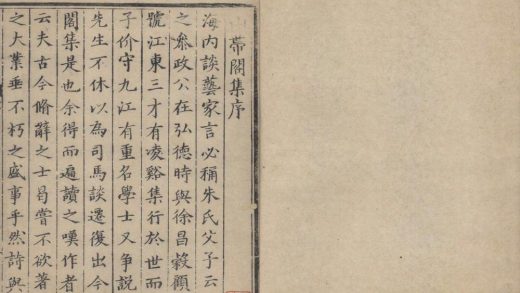 山帶閣集序
海內談藝家言必稱朱氏父子云
之叅政公在弘德時與徐昌穀顧
號江東三才有凌谿集行於世而
子价守九江有重名學士又爭説
先生不休以為司馬談遷復出今
閣集是也余得而遍讀之嘆作者
云夫古今脩辭之士曷嘗不欲著
之大業垂不朽之盛事乎然詩與